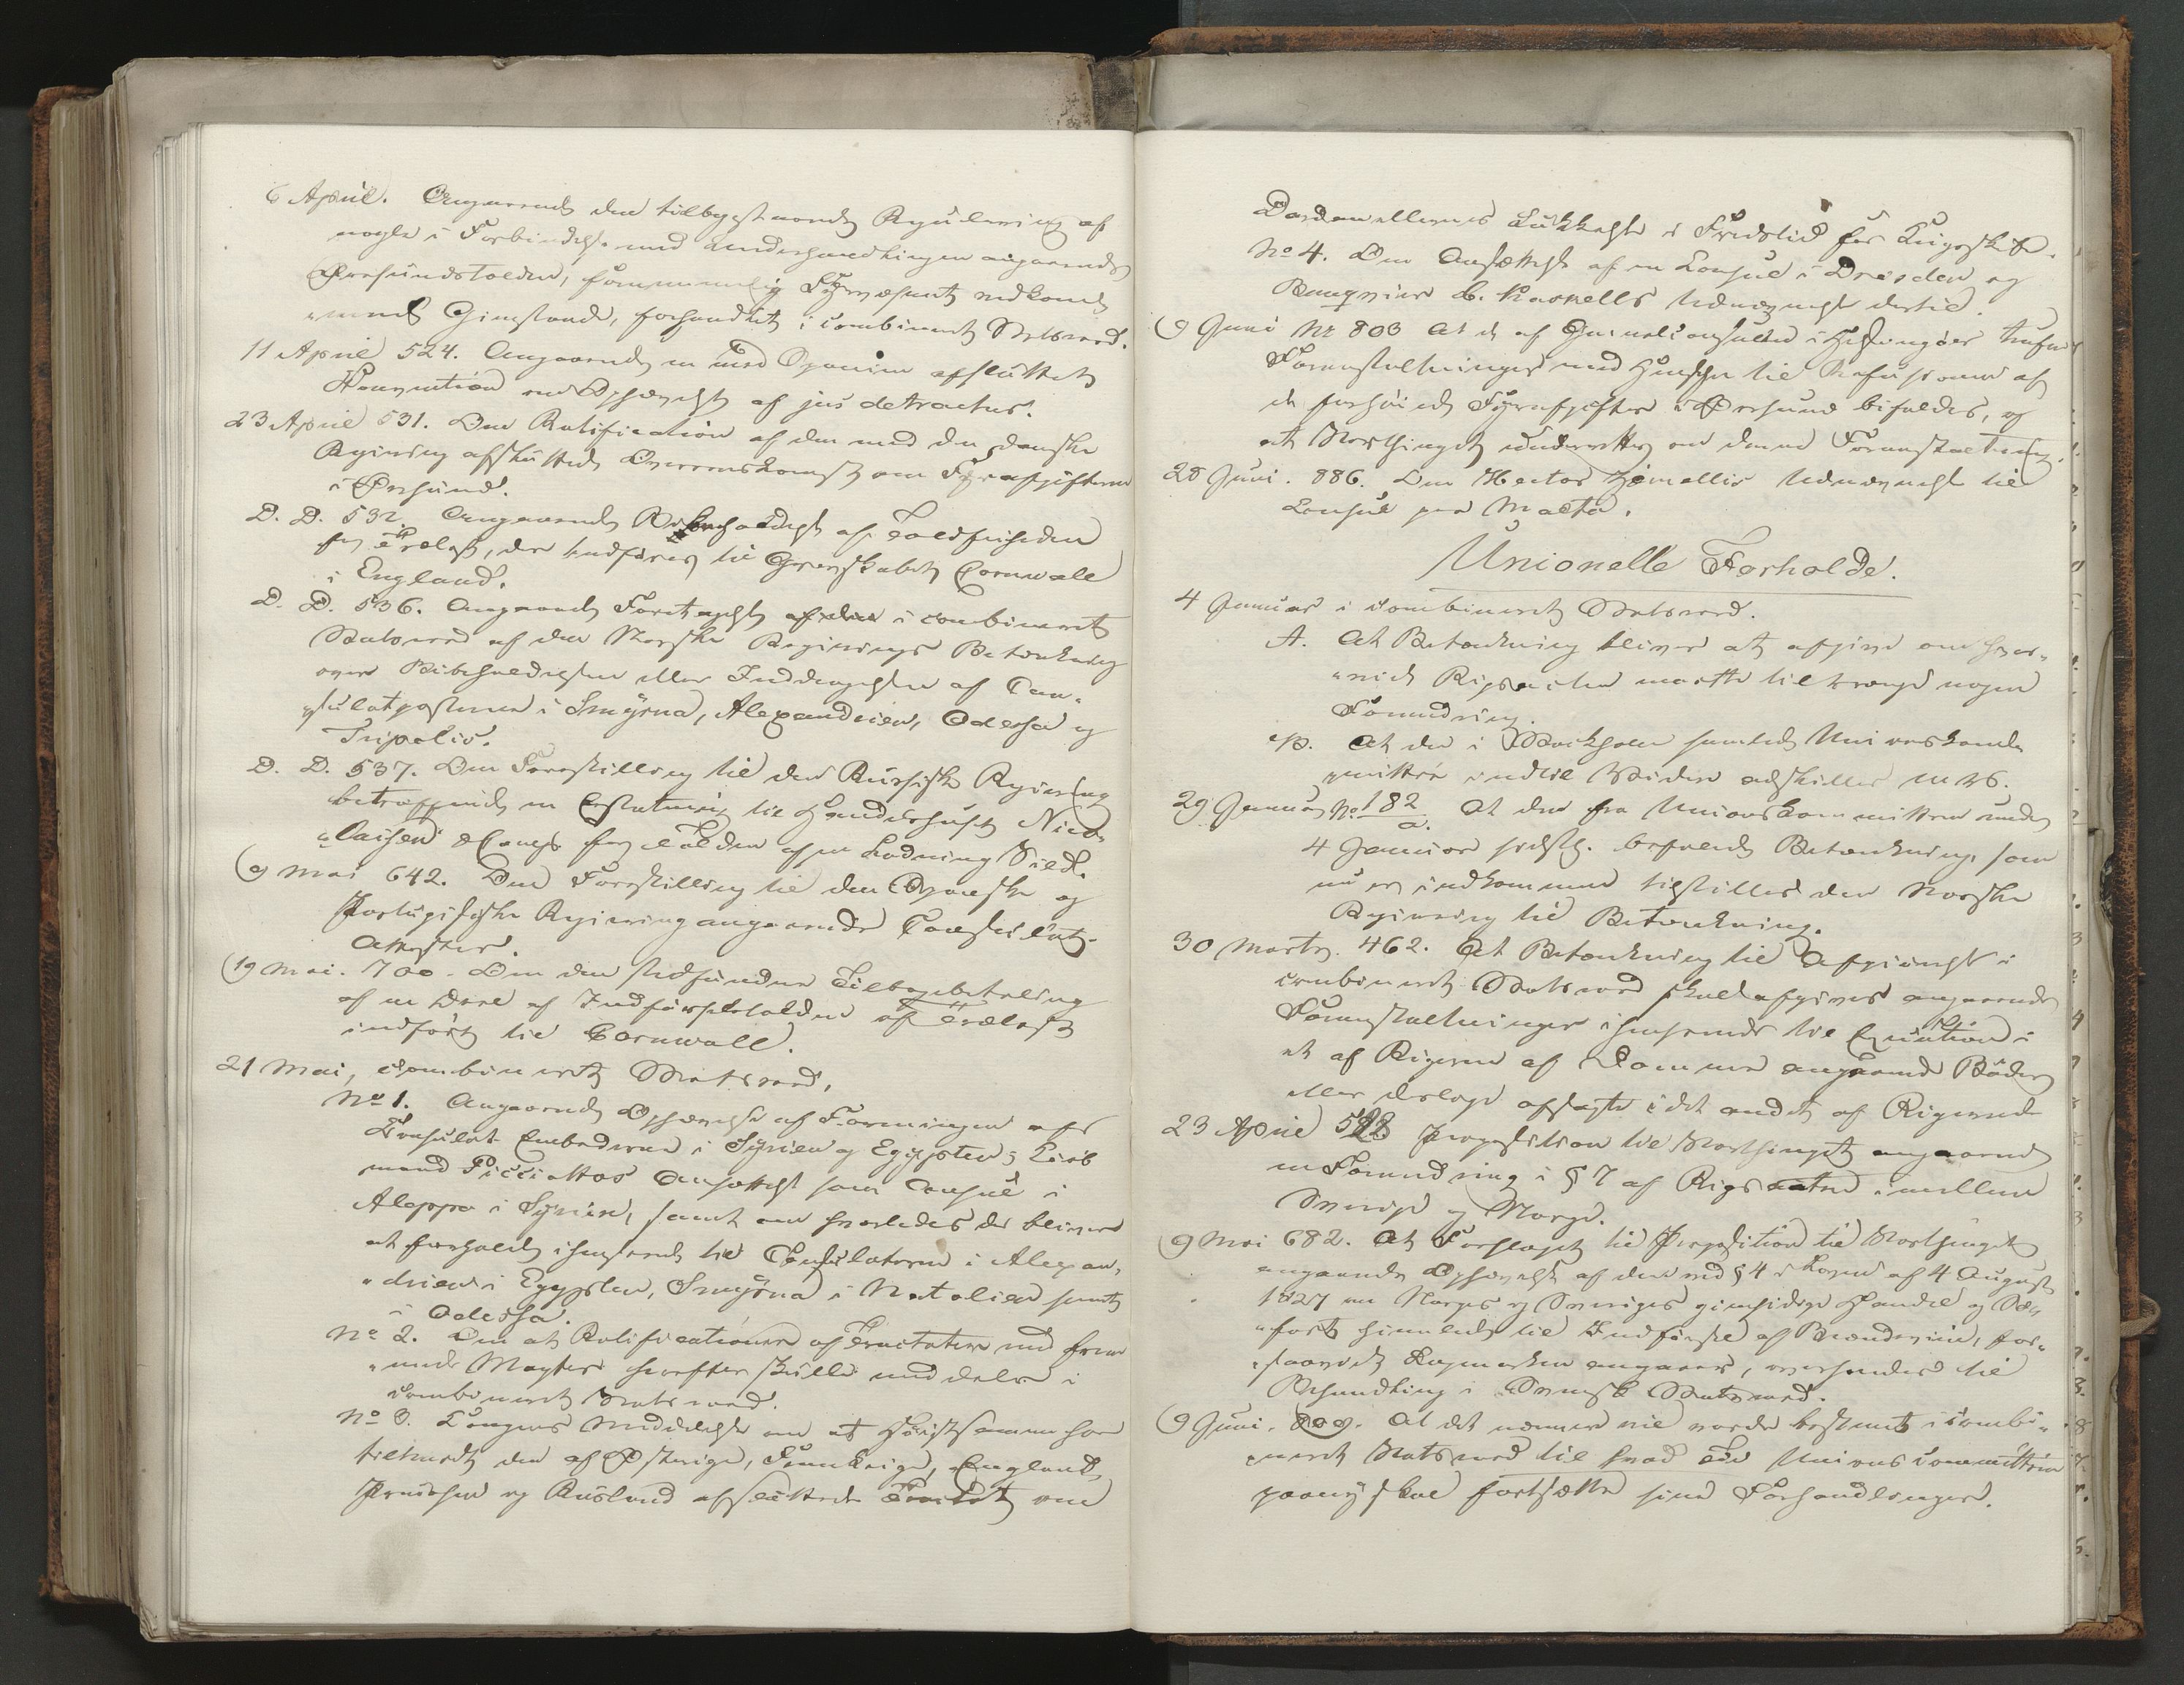 6 April. Angaaende den tilbagestaaende Regulering af
nogle i Forbindelse med Underhandlingen angaaende
Øresundstolden, fornemmelig Fyrvæsenet vedkom-
mende Gjenstande, forhandlet i combineret Statsraad.
11 April 524. Angaaende en med Spanien afsluttet
Convention om Ophævelse af jus detractus.
23 April 531. Om Ratification af den med den danske
Regjering afsluttede Overeenskomst om Fyrafgifterne
i Øresund.
D. D. 532. Angaaende Beibeholdelse af Toldfriheden
for Trælast, der indføres til Grevskabet Cornwall
i England.
D. D. 536. Angaaende Foretagelse i combineret
Statsraad af den Norske Regjerings Betænkning
over Bibeholdelsen eller Inddragelsen af Con-
sulatposterne i Smyrna, Alexandrien, Odessa og
Tripolis.
D. D. 537. Om Forestilling til den Russiske Regjering
betræffende en Erstatning til Handelshuset Nico-
laisen & Comp for Tolden af en Ladning Sild.
9 Mai 642. Om Forestilling til den Spanske og
Portugisiske Regjering angaaende Consulat-
Attester.
19 Mai. 700. Om den stedfundne Tilbagebetaling
af en Deel af Indførselstolden af Trælast
indført til Cornwall.
21 Mai, i combineret Statsraad,
No 1. Angaaende Ophævelse af Foreningen af
Consulat Embederne i Syrien og Egypten; Kjøb
mand Picciottos Ansættelse som Consul i
Aleppo i Syrien, samt om hvorledes der bliver
at forholde i henseende til Consulaterne i Alexan-
drien i Egypten, Smyrna i Natolien samt
i Odessa.
No 2. Om at Ratificationer af Tractater med frem-
mede Magter herefter skulle meddeles i
combineret Statsraad.
No 3. Kongens Meddelelse om at Høistsamme har
tiltraadt den af Østerige, Frankrige, England,
Preussen og Rusland afsluttede Tractat om
Dardanellernes Lukkelse i Fredstid for Krigsskibe.
No 4. Om Ansættelse af en Consul i Dresden og
Banquier C. Kaskells Udnævnelse dertil.
9 Juni Nr 803 At de af Generalconsulen i Helsingøer trufne
Foranstaltninger med Hensyn til Refusionen af
de forhøiede Fyrafgifter i Øresund bifaldes, og
at Storthinget underrettes om denne Foranstaltning.
28 Juni. 886. Om Hector Zimellis Udnævnelse til
Consul paa Malta.
Unionelle Forholde.
4 Januar i combineret Statsraad.
A. At Betænkning bliver at afgive om hvor-
vidt Rigsacten maatte tiltrænge nogen
Forandring.
B. At den i Stockholm samlede Unionskom-
mittee indtil Videre adskilles m. v.
29 Januar No 182/a. At den fra Unionskommitteen under
4 Januar sidstl. befalede Betænkning, som
nu er indkommen tilstilles den Norske
Regjering til Betænkning.
30 Marts. 462. At Betænkning til Afgjørelse i
combineret Statsraad skal afgives angaaende
Foranstaltninger i henseende til Exekution i
et af Rigerne af Domme angaaende Bøder
eller deslige afsagte i det andet af Rigerne
23 April 522 Proposition til Storthinget angaaende
en Forandring i § 7 af Rigsacten imellem
Sverige og Norge.
9 Mai 682. At Forslaget til Proposition til Storthinget
angaaende Ophævelse af den ved § 4 i Loven af 4 August
1827 om Norges og Sveriges gjensidige Handel og Søe-
fart hjemlede til Indførsel af Brændeviin, for-
saavidt angaaer, oversendes til
Behandling i Svensk Statsraad.
9 Juni. 809. At det nærmere vil vorde bestemt i combi-
neret Statsraad til hvad Tid Unionscommitteen
paany skal fortsætte sine Forhandlinger.